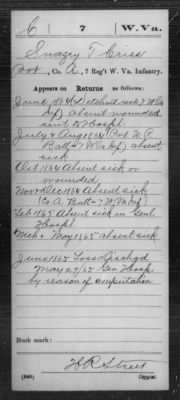 C 7 W.Va.
T Criss
Co. A, 7 Reg't W. Va. Infantry.
Appears on Returns as follows:
June 1864 absent wounded
sent to Hospl.
July & Aug 1864
Batt 7 W Va absent
sick
Oct 1864 Absent sick or
wounded
Nov & Dec 1864 Absent sick
(Co A. Batt 7 W Va
Feb 1865 Absent sick in Genl
Hospl
Mch & May 1865 absent sick
June 1865 Loss Dischgd
May 24/65 Gen Hosp
by reason of amputation
Book mark:
H R Street
(546) Copyist.